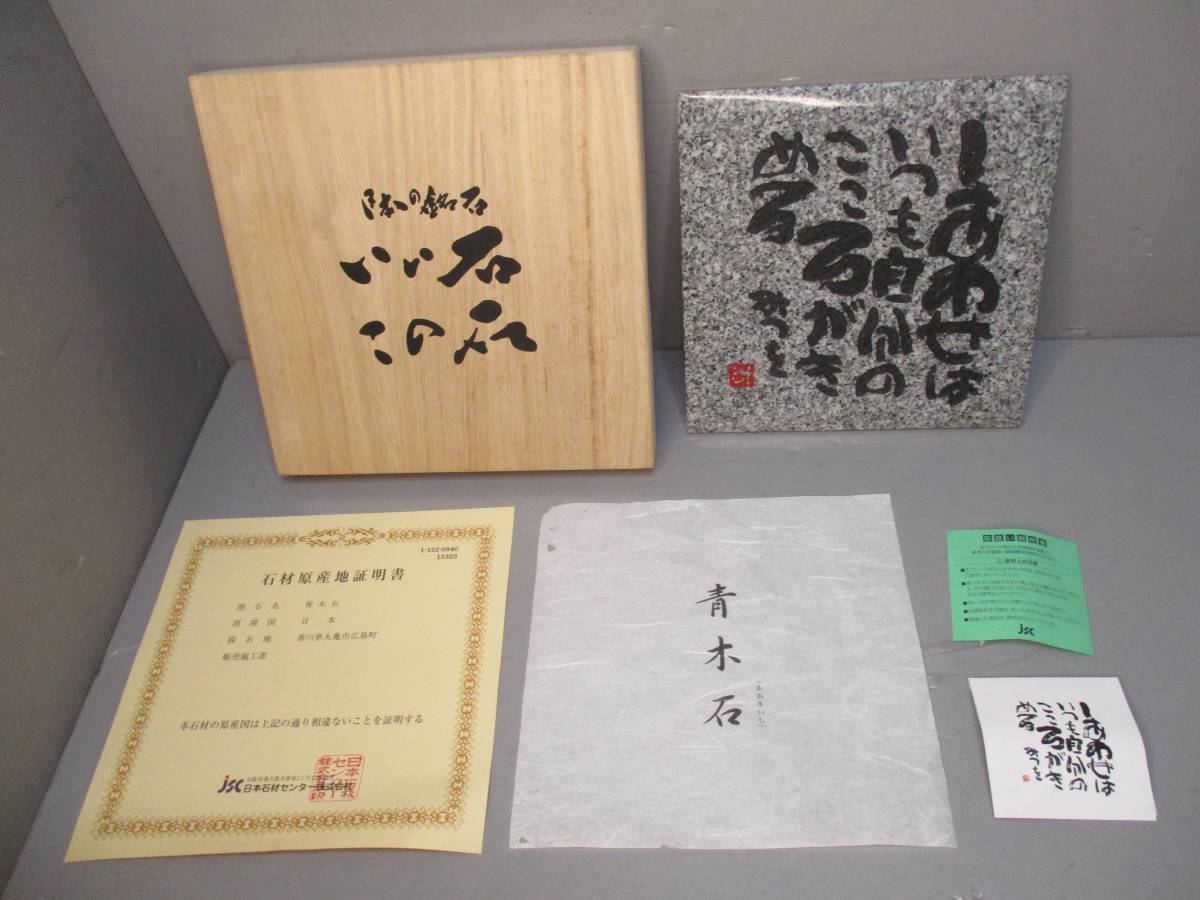 日本の銘石
いい石
この石
しあわせは
いつも自分の
こころがき
める
みつを
1-122-0840
15323
石材原産地証明書
原石名 青木石
原産国 日本
採石地 香川県丸亀市広島町
販売施工者
本石材の原産国は上記の通り相違ないことを証明する
jsc 日本石材センター株式会社
青木石
(あおきいし)
取扱い説明書
⚠ 使用上の注意
jsc
しあわせは
いつも自分の
こころがき
める
みつを